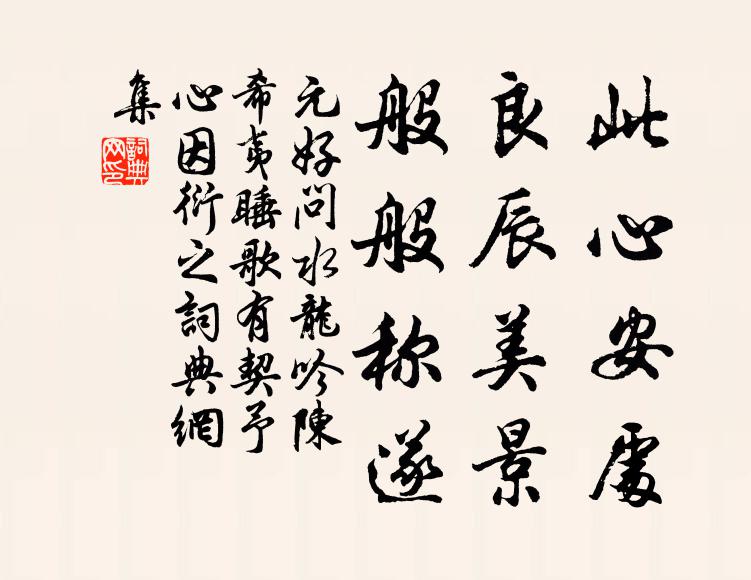 此心安處
良辰美景
般般称遂
元好问水龍吟陳
希夷睡歌有契予
心因衍之詞典網
集
詞典
网印